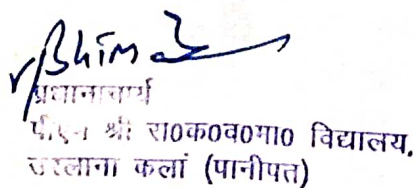 प्रधानाचार्य
पीएम श्री रा0क0व0मा0 विद्यालय.
उरलाना कलां (पानीपत)